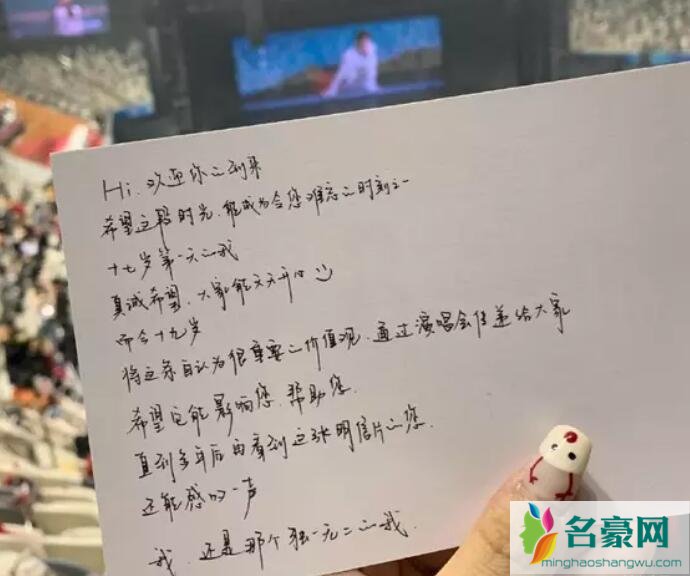 Hi.欢迎你的到来
希望这段时光.能成为令您难忘的时刻之一
十七岁第一天的我
真诚希望.大家能天天开心
而今十九岁
将这条自认为很重要的价值观.通过演唱会传递给大家
希望它能影响您.帮助您.
直到多年后再看到这张明信片的您.
还能感叹一声
我.还是那个独一无二的我.
名豪网
minghaoshangwu.com